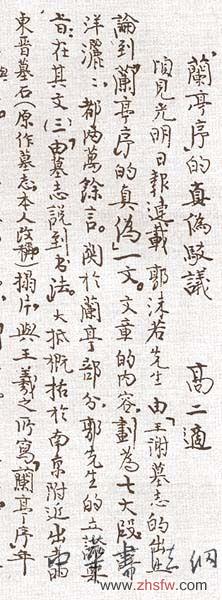 「蘭亭序」的真偽駁議　　高二適
頃見光明日報連載郭沫若先生「由王謝墓志的出土
論到「蘭亭序」的真偽」一文。文章的內容，劃為七大段，
洋灑灑，都為萬餘言。關於蘭亭部分，郭先生的立論
旨，在其文(三)「由墓志說到書法」。大抵概括於南京附近出
東晉墓石(原作墓志，本人改稱)搨片，與王羲之所寫「蘭亭序」年
www.zhsfw.com